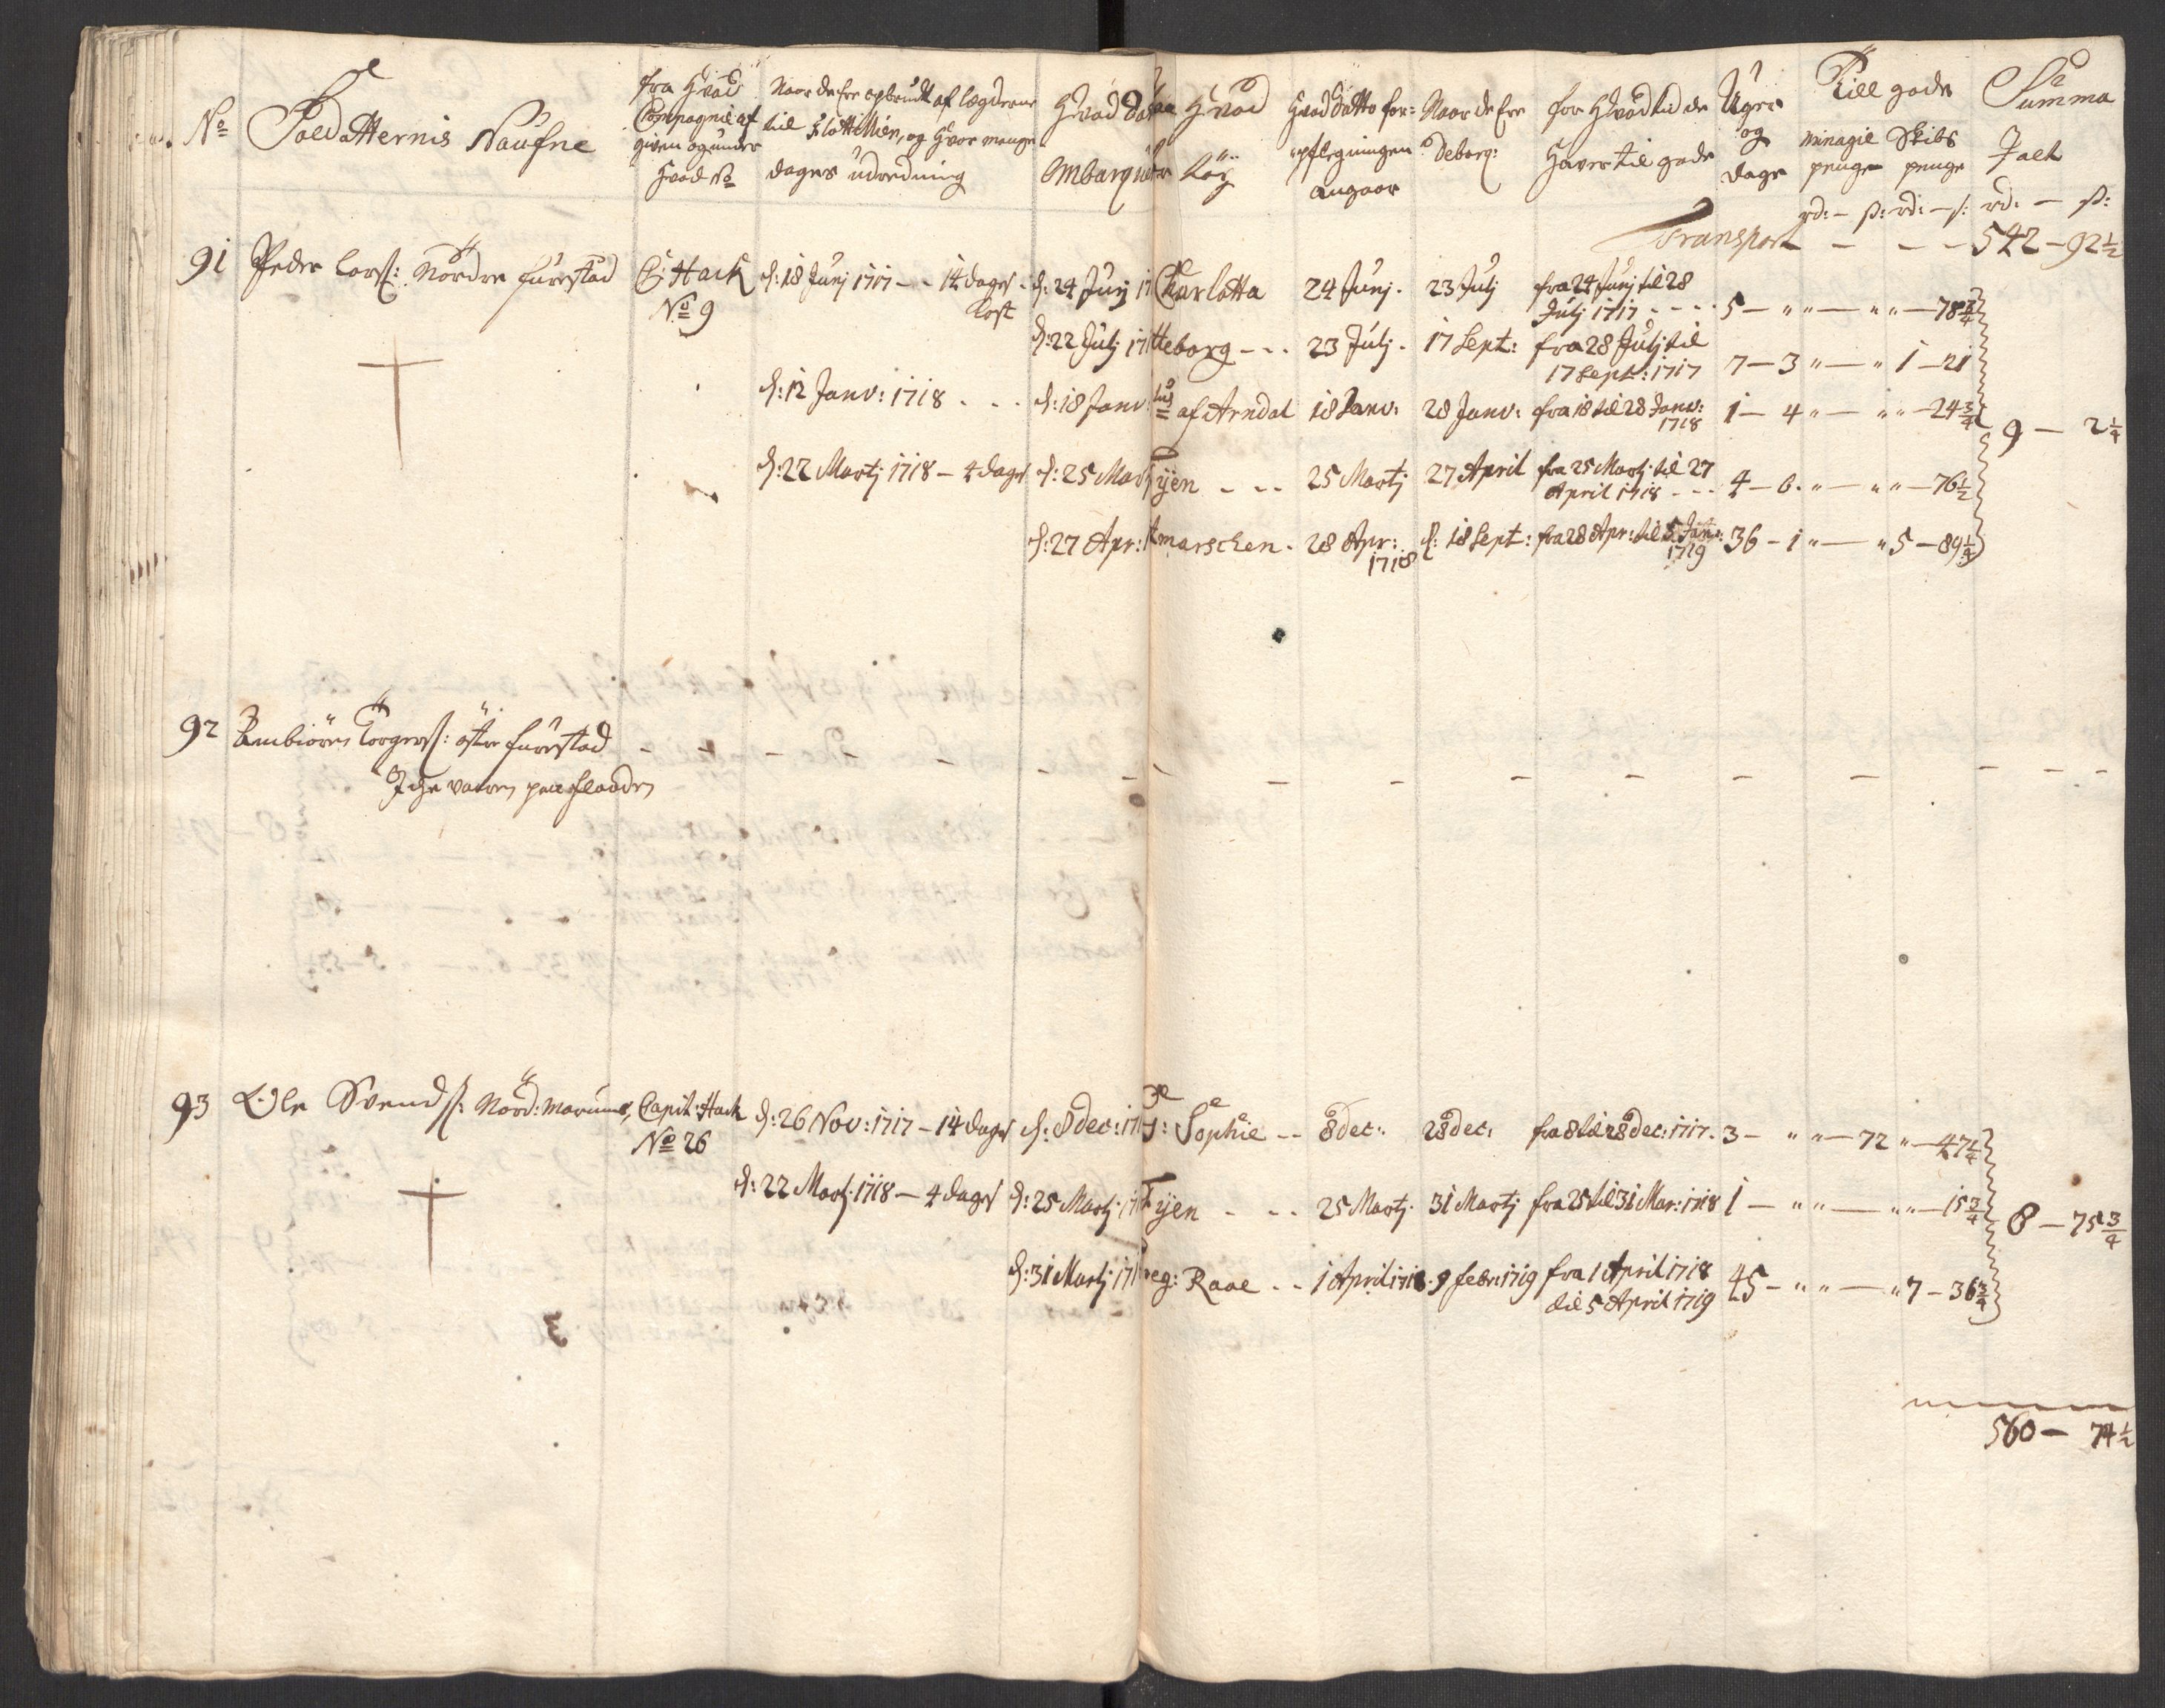 No Soldatternis Naufne
fra Hvad Compagnie af given og under Hvad No
Naar de ere opbrudt af lægderne til Flottillien, og Hvor mange dages udredning
Hvad Datum Embarquer
Hvad Töy
Hvad datto for:pflegningen angaar
Naar de Ere deborq:
for Hvad tid de Haver til gode
Uger og dage
Till gode
minagie penge
Skibs penge
Summa Talt
rd: – s: rd: – s: rd: – s:
Transport – – – 542 – 92 1/2
91 Peder Lars: Nordre furestad C: Hack d: 18 Junj 1717 - - 14 dages d: 24 Junj 17 Charlotta 24 Junj. 23 Julj fra 24 Junj til 28
No 9 Kost Julj 1717 - - - 5 – " " — " " — 78 3/4
d: 22 Julj 17 tteborg - - - 23 Julj. 17 Sept: fra 28 Julj til
17 Sept: 1717 7 – 3 " — " 1 – 21
d: 12 Janv: 1718 - - - d: 18 Janv: af Arndal 18 Janv: 28 Janv: fra 18 til 28 Janv: 1718 1 – 4 " — " " – 24 3/4
9 — 2 1/4
d: 22 Martj 1718 – 4 dages d: 25 Mart Fyen - - - 25 Martj 27 April fra 25 Martj til 27
April 1718 - - - 4 – 6. " — " " – 76 1/2
d: 27 Apr: tmarschen. 28 Apr: 1718 d: 18 Sept: fra 28 Apr: til 5 Jan: 1719 36 – 1 " — " 5 – 89 1/4
92 Torgers: östre furestad – – – – – – – – – – – – – – –
Iche været paa flaaden
93 Ole Svends: Nord: Marum, Capit: Hack d: 26 Nov: 1717 – 14 dages d: 8 dec: 17 : Sophie - - 8 dec: 28 dec: fra 8 til 28 dec: 1717. 3 – " " – 72 " – 47 1/4
No 26
d: 22 Martj: 1718 – 4 dages d: 25 Martj: 17 Fyen - - - 25 Martj: 31 Martj fra 25 til 31 Mar: 1718 1 – " " — " " – 15 3/4
8 – 75 3/4
d: 31 Martj 17 reg: Raae - - 1 April 1718. 9 febr: 1719 fra 1 April 1718
til 5 April 1719 45 – " " — " 7 – 36 3/4
560 – 74 1/2